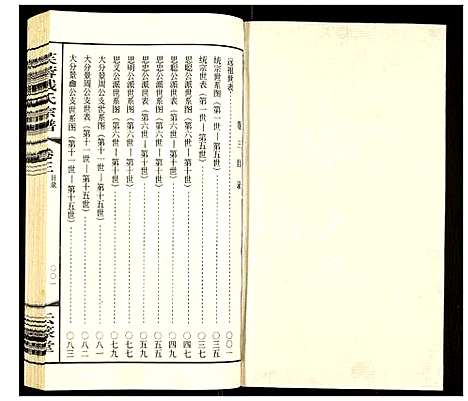 卷三目录
远祖世表……〇〇一
统宗世系图（第一世—第五世）……〇三五
统宗世表（第一世—第五世）……〇三七
思聪公派世系图（第六世—第十世）……〇四七
思聪公派世表（第六世—第十世）……〇四九
思忠公派世系图（第六世—第十世）……〇五七
思忠公派世表（第六世—第十世）……〇五九
思明公派世系图（第六世—第十世）……〇七七
思义公派世系图（第六世—第十世）……〇七九
大分景周公支世系图（第十一世—第十五世）……〇八一
大分景周公支世表（第十一世—第十五世）……〇八二
大分景曲公支世系图（第十一世—第十五世）……〇八三
芙蓉戏氏宗谱
卷三
目录
〇〇一